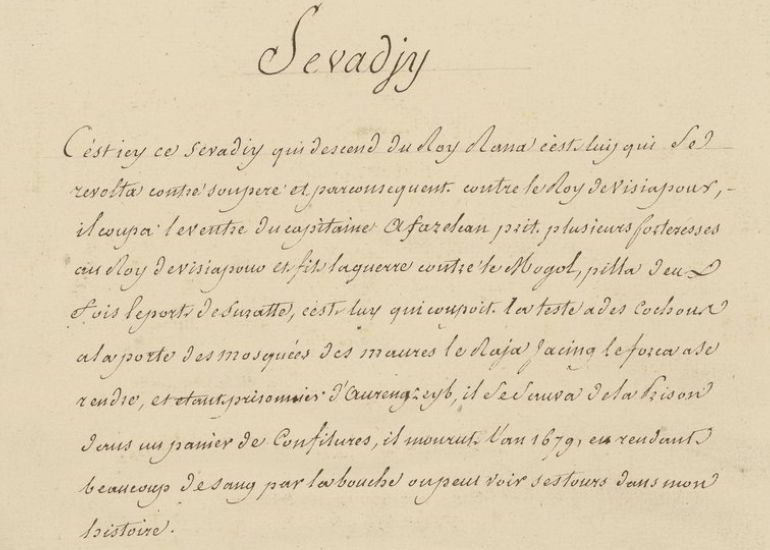 Sevadjy
C'est icy ce Sevadjy qui descend du Roy Rana c'est luy qui Se
revolta contre son pere et par consequent contre le Roy de visiapour,
il coupa le ventre du capitaine Afazelcan prit plusieurs forteresses
au Roy de visiapour et fit la guerre contre le Mogol, pilla deux
fois le port de Suratte, c'est luy qui coupoit la teste a des Cochons
a la porte des mosquées des maures le Raja Jacing le força a se
rendre, et etant prisonnier d'Aurengzeyb, il se Sauva de la Prison
dans un panier de Confitures, il mourut l'an 1679, en rendant
beaucoup de sang par la bouche on peut voir ses tours dans mon
histoire.